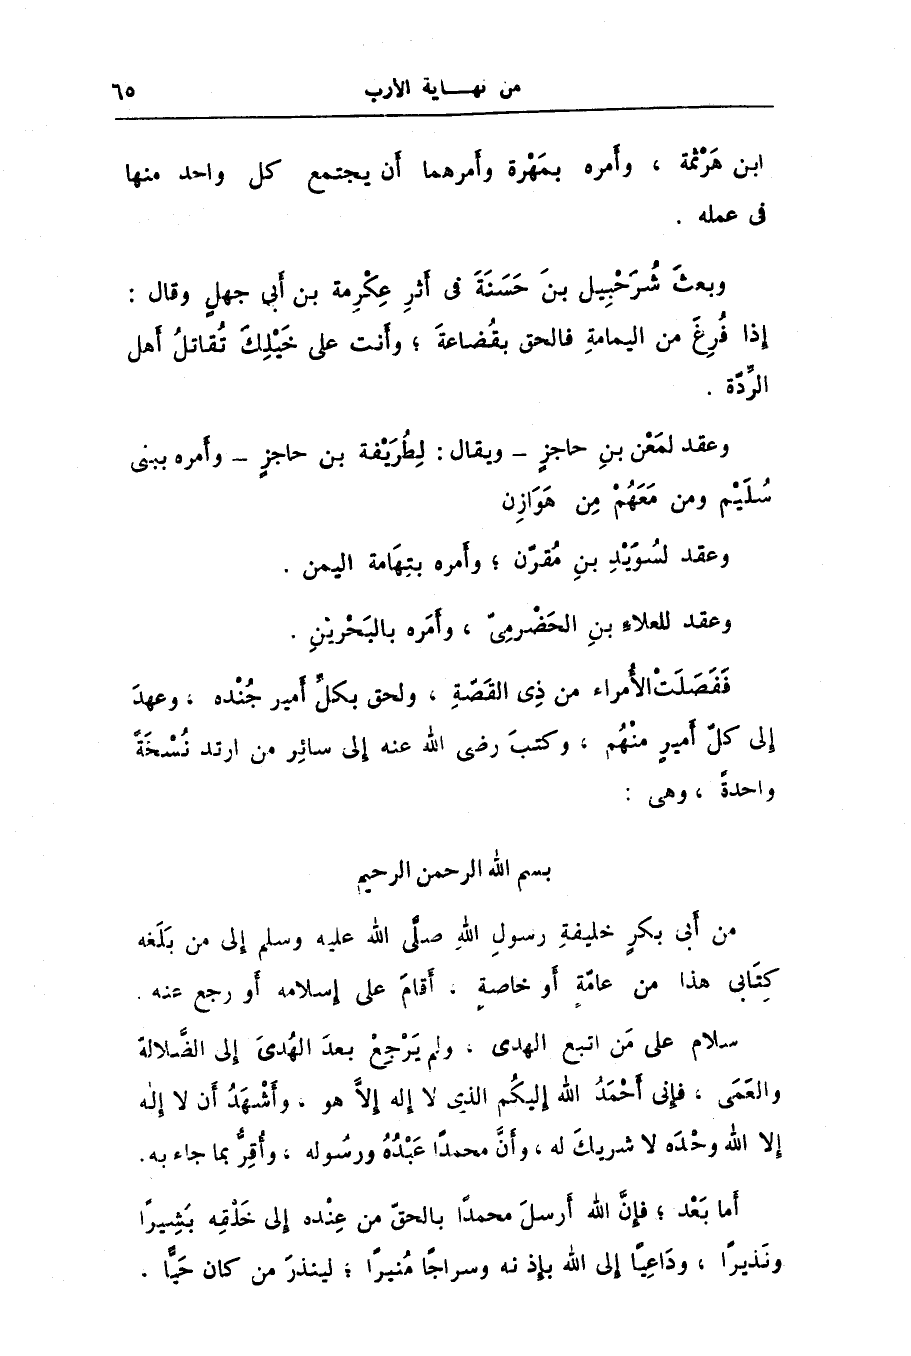 من نهـــاية الأرب ٦٥
ابن هَرْثمة ، وأَمره بمَهْرة وأَمرهما أَن يجتمع كل واحد منها
فى عمله .
وبعثَ شُرَحْبِيل بنَ حَسَنَةَ فى أَثرِ عِكْرِمة بن أَبي جهلٍ وقال :
إذا فُرِغَ من اليمامةِ فالحق بقُضاعةَ ؛ وأَنت على خَيْلِكَ تُقاتلُ أَهل
الرِّدّة .
وعقد لمَعْن بنِ حاجزٍ – ويقال : لِطُرَيْفة بن حاجزٍ – وأَمره ببنى
سُلَيْم ومن مَعَهُمْ مِن هَوَازِن
وعقد لسُوَيْدِ بنِ مُقرّن ؛ وأَمره بتِهَامة اليمن .
وعقد للعلاءِ بنِ الحَضْرمِىّ ، وأَمَره بالبَحْريْنِ .
فَفَصَلَتْ الأُمراء من ذِى القَصّةِ ، ولحق بكلِّ أَمير جُنْده ، وعهدَ
إلى كلّ أَميرٍ منْهُم ، وكتبَ رضى الله عنه إلى سائِر من ارتد نُسْخَةً
واحدةً ، وهى :
بسم الله الرحمن الرحيم
من أَبى بكرٍ خليفةِ رسولِ اللهِ صلَّى الله عليه وسلم إلى من بَلَغه
كِتَابى هذا من عامّةٍ أَو خاصةٍ ، أَقامَ على إسلامه أَو رجع عنه .
سلام على مَن اتبع الهدى ، ولم يَرْجِعْ بعدَ الهُدىَ إلى الضَّلالة
والعَمَى ، فإنى أَحْمَدُ الله إليكُم الذى لا إله إلاَّ هو ، وأَشْهَدُ أَن لا إله
إلا الله وحْدَه لا شريكَ له ، وأَنَّ محمدًا عَبْدُهُ ورسُوله ، وأُقِرُّ بما جاء به.
أَما بَعْد ؛ فإنَّ الله أَرسلَ محمدًا بالحقّ من عِنْده إلى خَلْقِه بَشِيرًا
ونَذيرًا ، ودَاعِيًا إلى الله بإذنه وسراجًا مُنيرًا ؛ لينذرَ من كان حَيًّا .